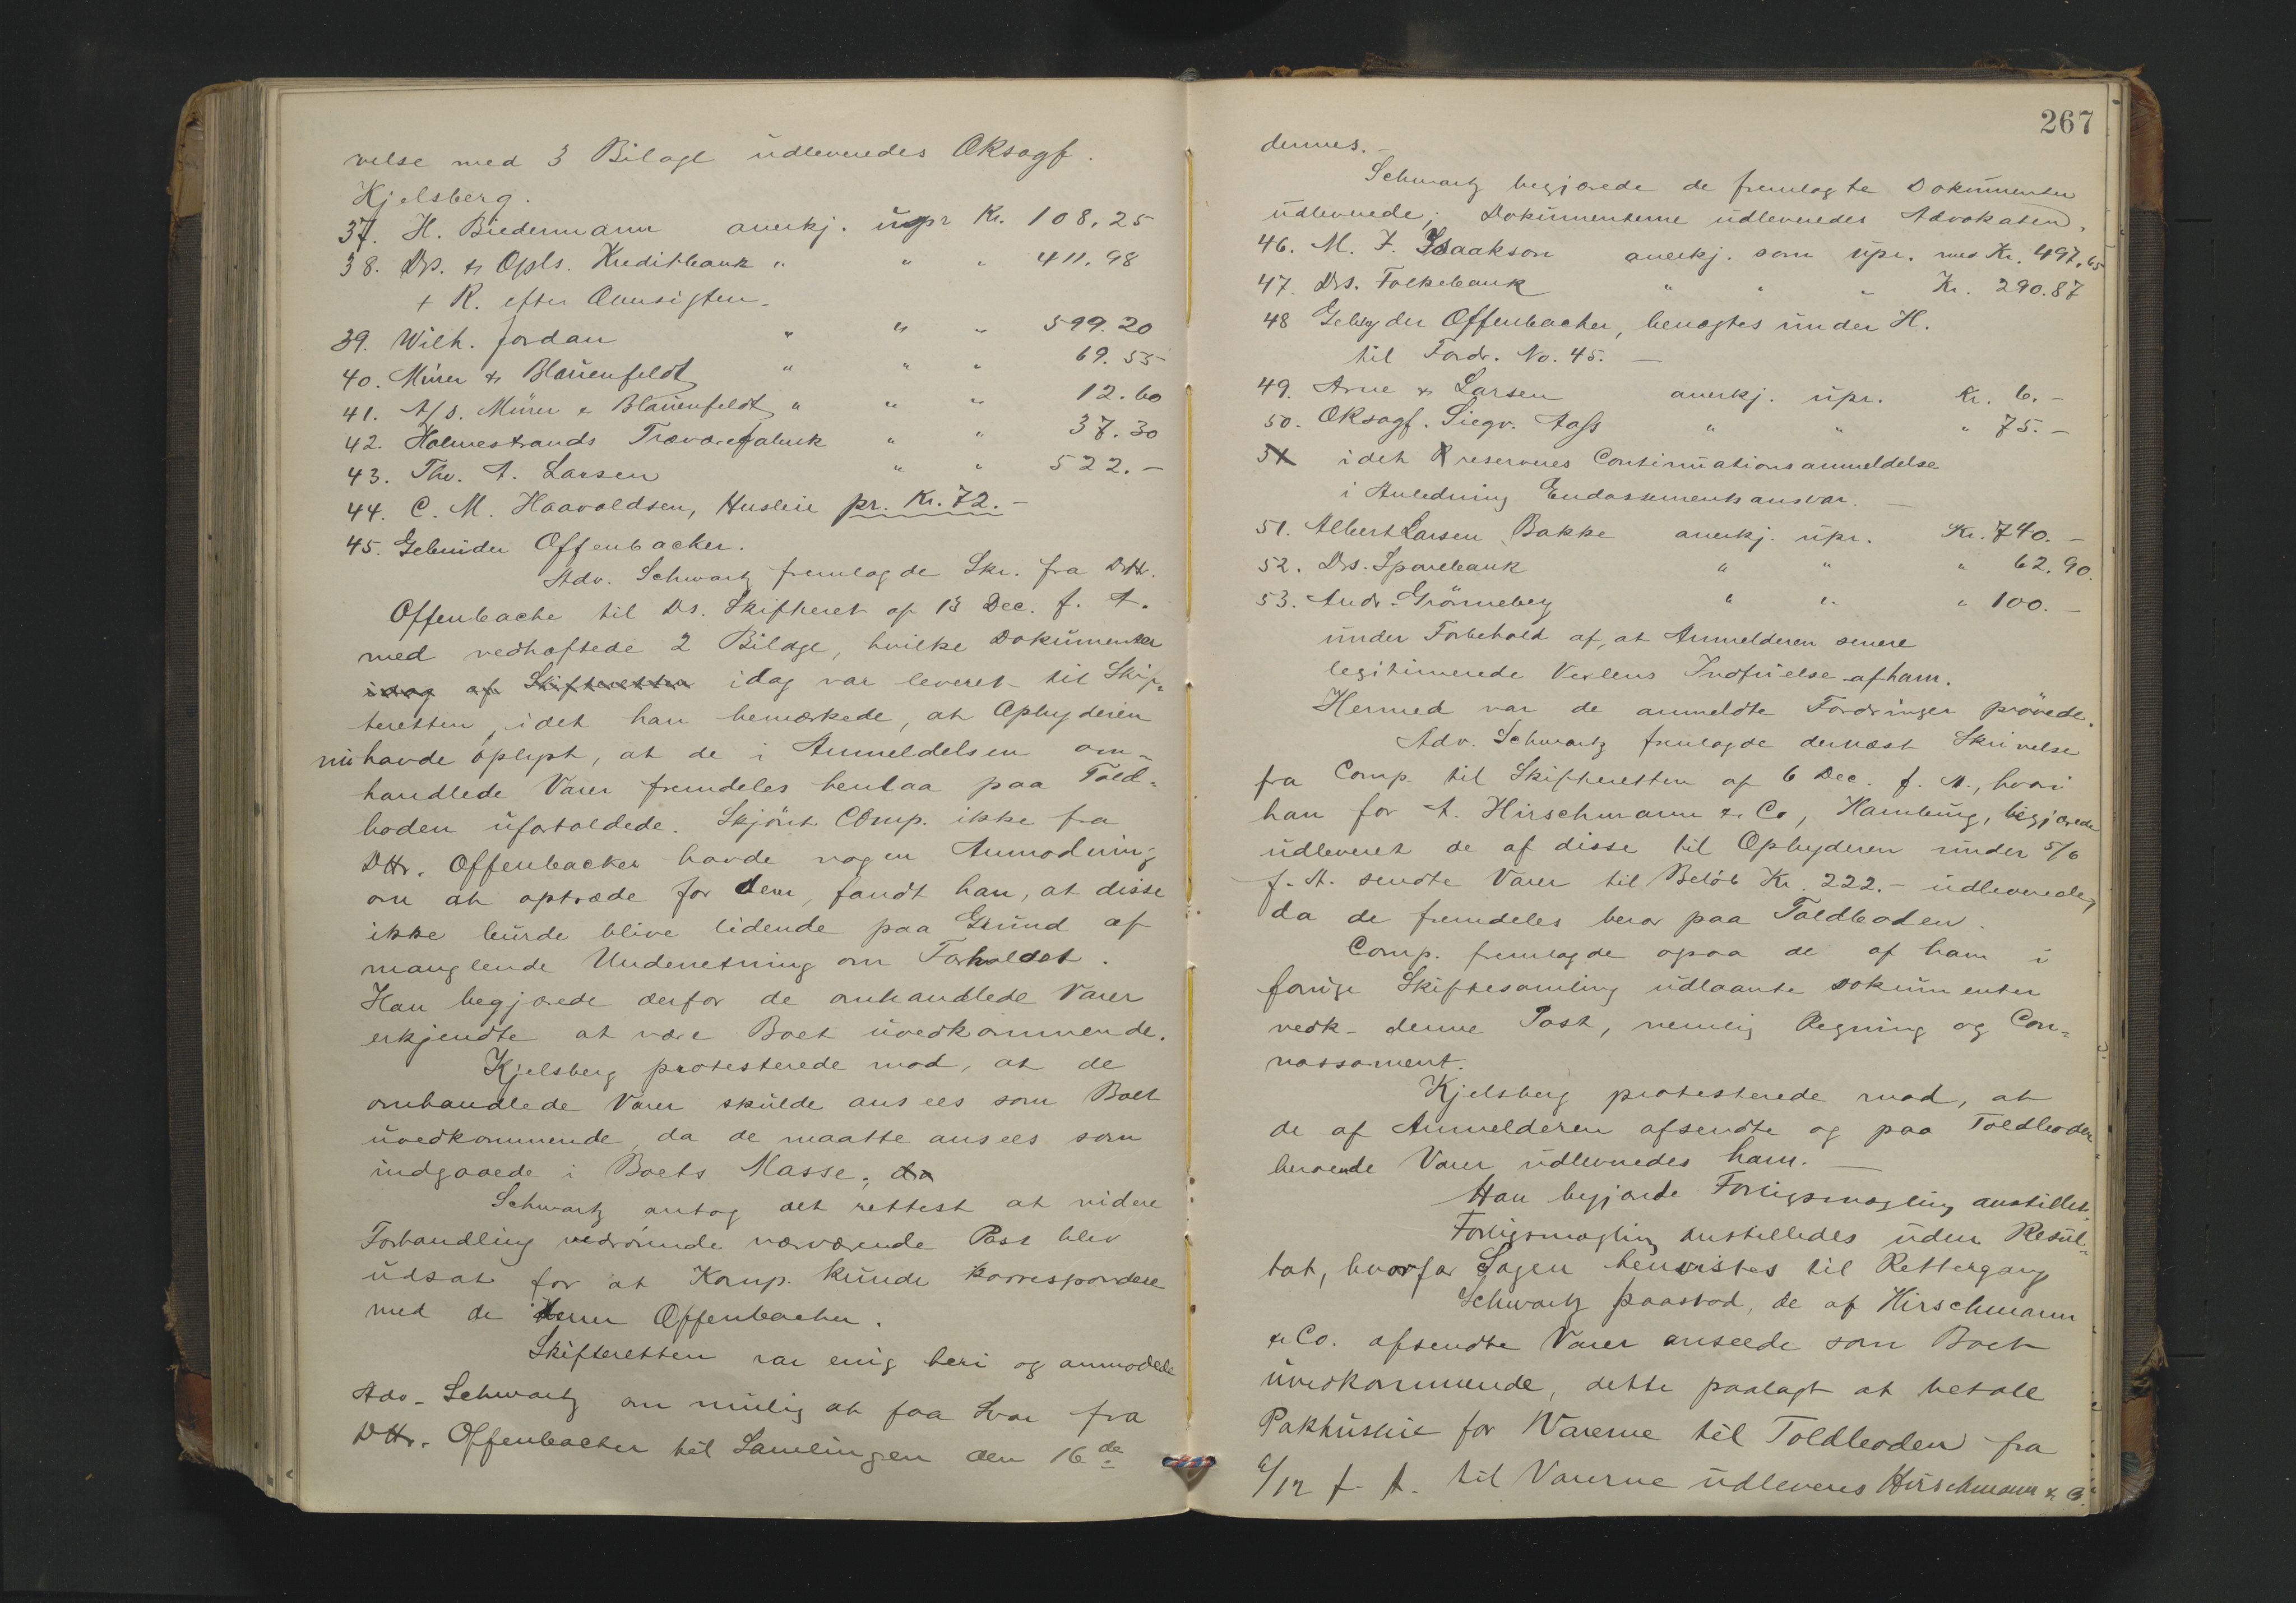 velse med 3 Bilage udleveredes OKsagf.
Kjelsberg.
37. H. Biedermann anerkj. upr Kr. 108,25
38. Drs. & Opls. Kreditbank " " " 411.98
+ R. efter Omsigten.
39. Wilh. Jordan " " " 599.20
40. Mürer & Blauenfeldt " " " 69.55
41. A/S. Mürer & Blauenfeldt " " " 12.60
42. Holmestrands Trævarefabrik " " 37.30
43. Thv. A. Larsen " " 522.-
44. C. M. Haavaldsen, Husleie pr. Kr. 72.-
45. Gebrüder Offenbacher.
Adv. Schwartz fremlagde Skr. fra DHr.
Offenbache til Ds. Skifteret af 13 Dec. f. A.
med vedhæftede 2 Bilage, hvilke Dokumenter
idag af Skifteretten idag var leveret til Skif-
teretten, idet han bemærkede, at Opbyderen
nu havde oplyst, at de i Anmeldelsen om-
handlede Varer fremdeles henlaa paa Told-
boden ufortoldede. Skjönt Comp. ikke fra
DHr. Offenbacher havde nogen Anmodning
om at optræde for dem, fandt han, at disse
ikke burde blive lidende paa Grund af
manglende Underretning om Forholdet.
Han begjærede derfor de omhandlede Varer
erkjendte at være Boet uvedkommende.
Kjelsberg protesterede mod, at de
omhandlede Varer skulde ansees som Boet
uvedkommende, da de maatte ansees som
indgaaede i Boets Masse; da
Schwartz antog det rettest at videre
Forhandling vedrörende nærværende Post blev
udsat for at Komp. kunde korrespondere
med de Herrer Offenbacher.
Skifteretten var enig heri og anmodede
Adv. Schwartz om mulig at faa Svar fra
DHr. Offenbacher til Samlingen den 16de
267
dennes.-
Schwartz begjærede de fremlagte Dokumenter
udleverede; Dokumenterne udleveredes Advokaten.
46. M. J. Isaakson anerkj. som upr. med Kr. 497,65
47. Drs. Folkebank " " " Kr. 290.87
48 Gebryder Offenbacher, benægtes under H.
til Fordr. No. 45.-
49. Arne & Larsen anerkj. upr. Kr. 6.-
50. OKsagf. Siegv. Aass " " " 75.-
51 idet R reserveres Continuationsanmeldelse
i Anledning Endossementsansvar.-
51. Albert Larsen Bakke anerkj. upr. Kr. 740.-
52. Drs. Sparebank " " " 62,90.
53. Andr. Grönneberg " " " 100.-
under Forbehold af, at Anmelderen senere
legitimerede Vexlens Indfrielse af ham.
Hermed var de anmeldte Fordringer prövede.
Adv. Schwartz fremlagde dernæst Skrivelse
fra Comp. til Skifteretten af 6 Dec. f. A., hvori
han for A. Hirschmann & Co, Hamburg, begjærede
udleveret de af disse til Opbyderen under 5/6
f. A. sendte Varer til Belöb Kr. 222.- udleverede,
da de fremdeles beror paa Toldboden.
Comp. fremlagde ogsaa de af ham i
forrige Skiftesamling udlaante Dokumenter
vedk. denne Post, nemlig Regning og Con-
nossament.
Kjelsberg protesterede mod, at
de af Anmelderen afsendte og paa Toldboden
beroende Varer udleveredes ham.-
Han begjærede Forligsmægling anstillet.
Forligsmægling anstilledes uden Resul-
tat, hvorfor Sagen henvistes til Rettergang
Schwartz paastod, de af Hirschmann
& Co. afsendte Varer anseede som Boet
uvedkommende, dette paalagt at betale
Pakhusleie for Varerne til Toldboden fra
6/12 f. A. til Varerne udleveres Hirschmann & Co.